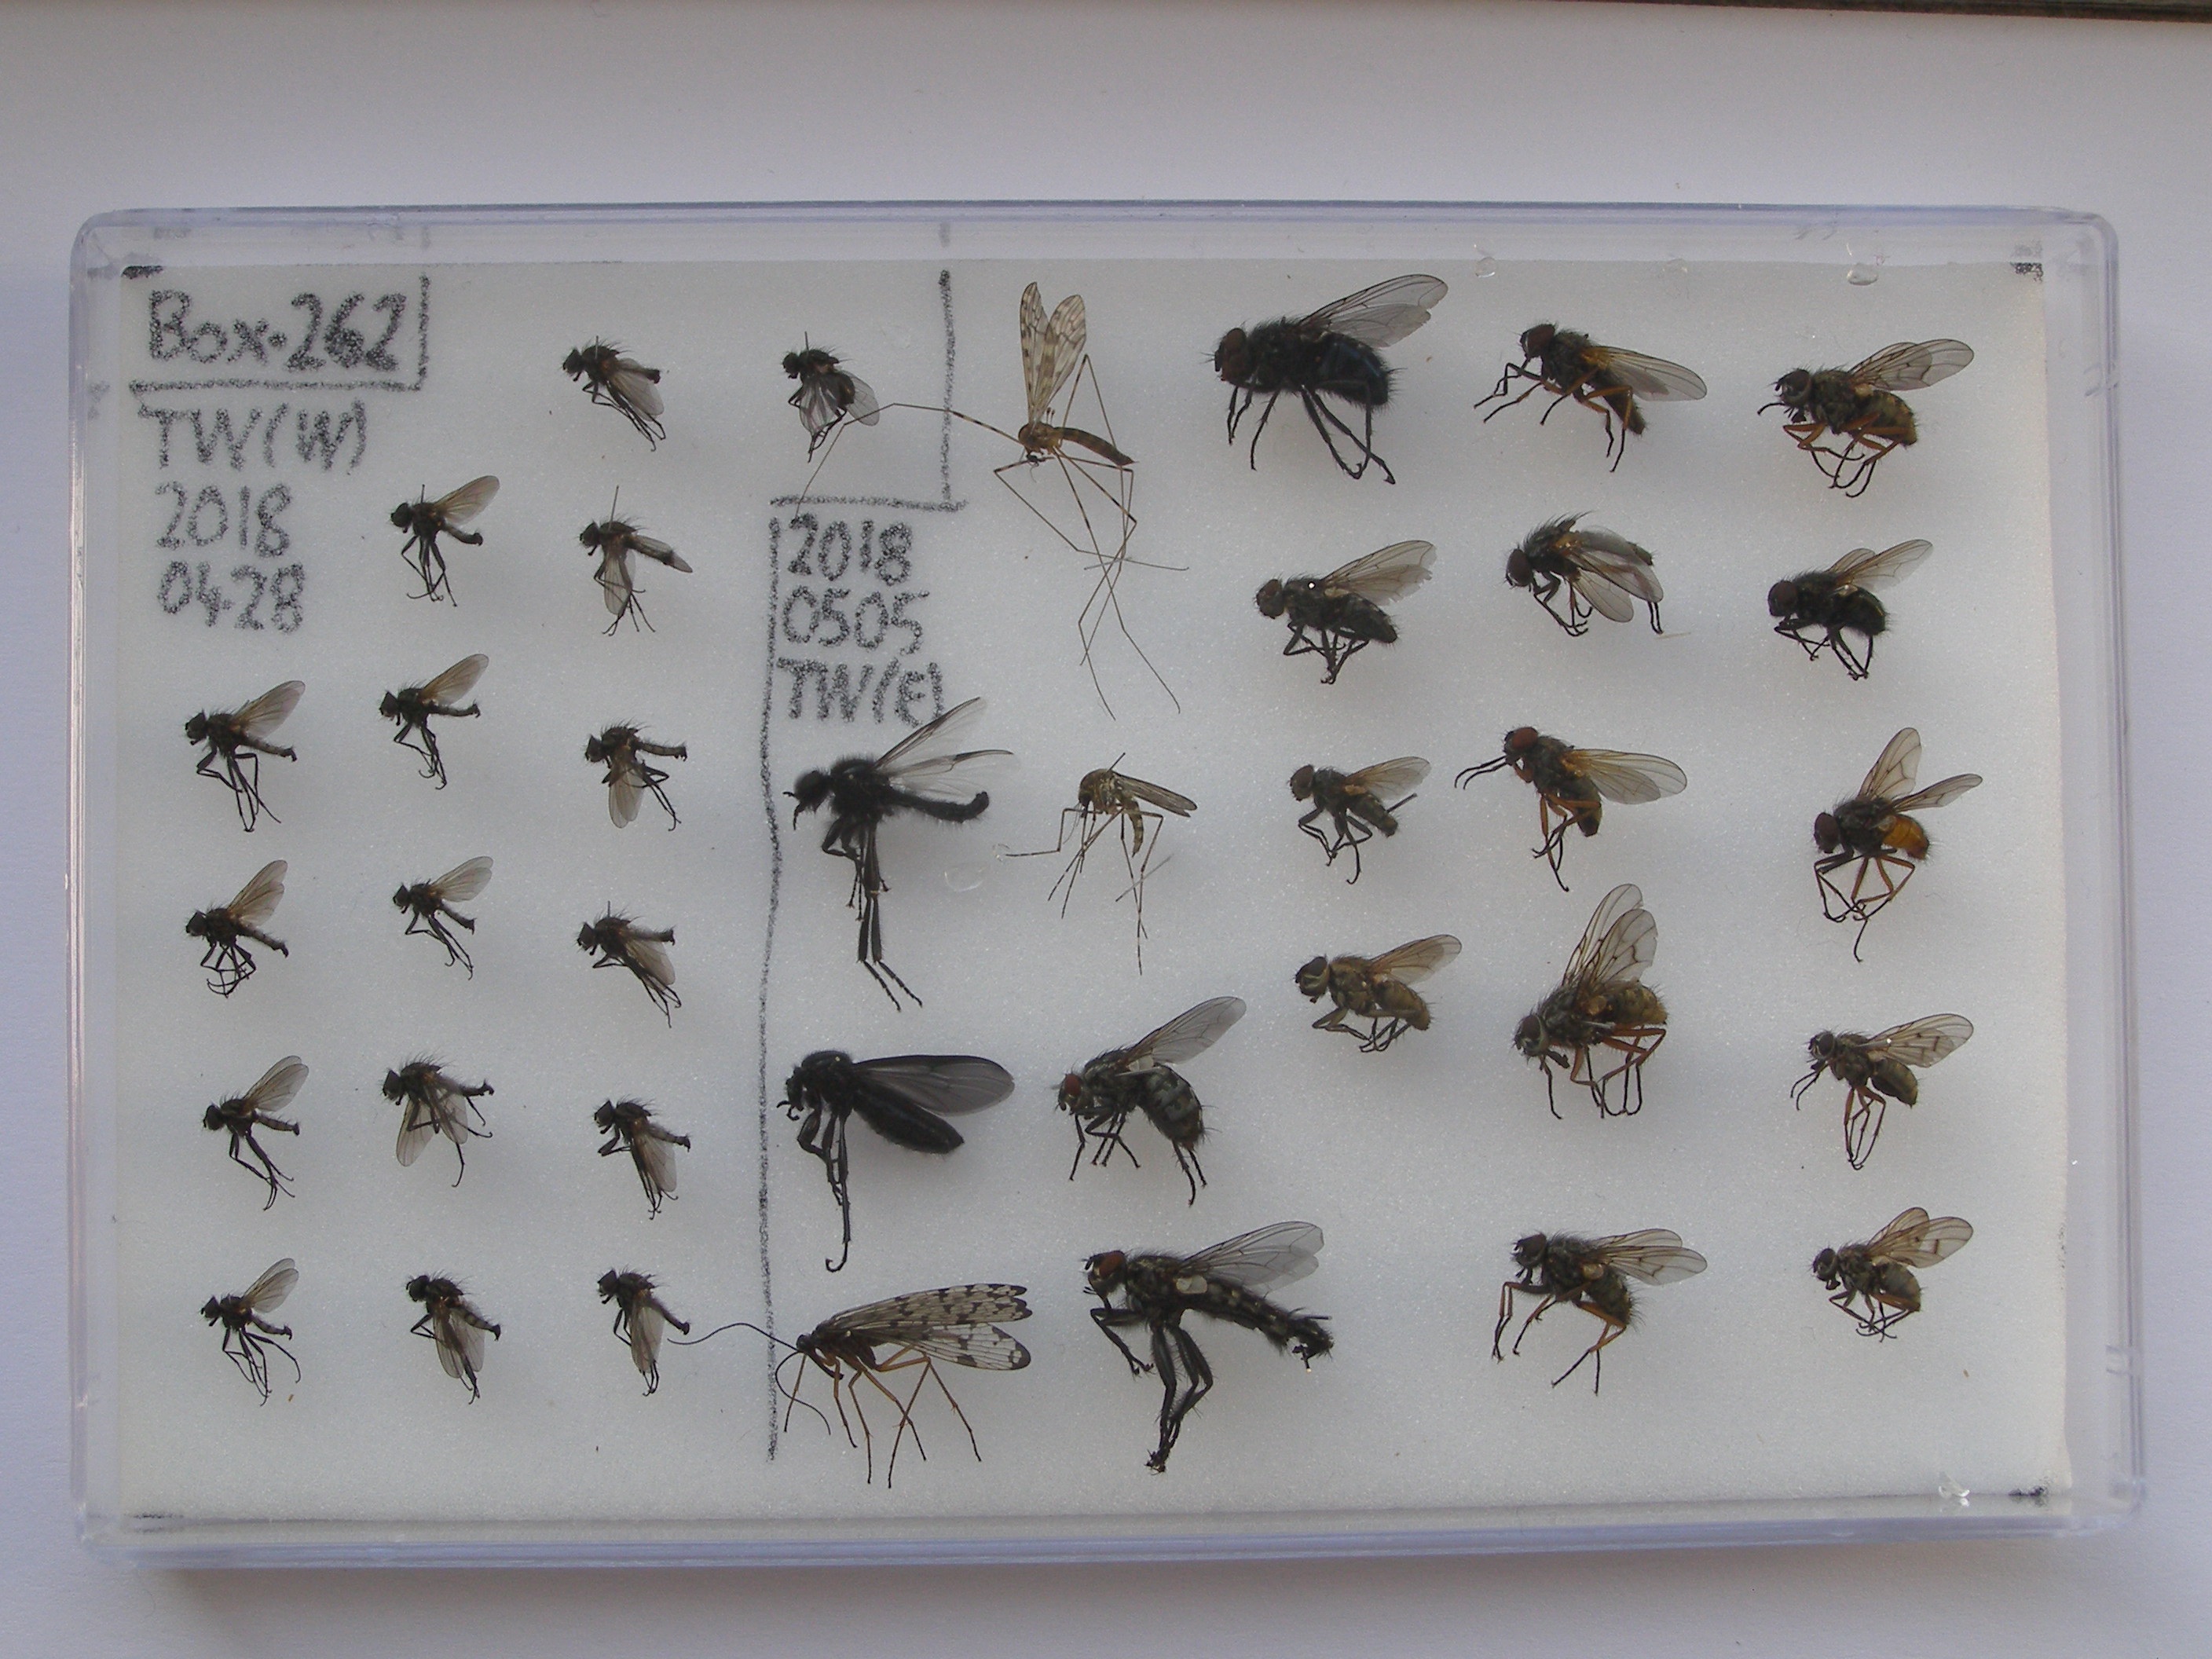 Box.262
TW(W)
2018
0428
2018
0505
TW(E)